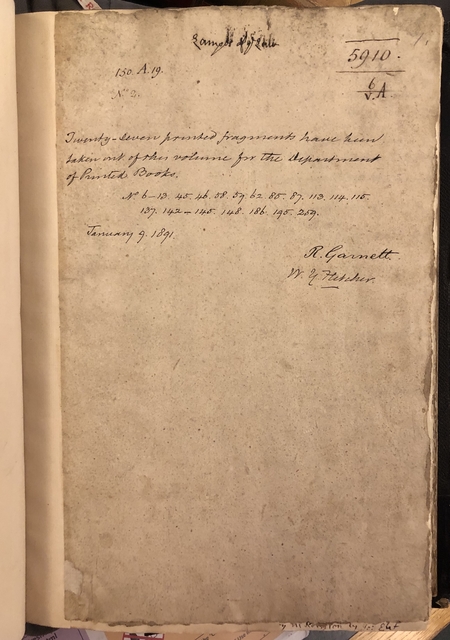 5910.
150. A. 19.
6
V. A
Nº 2.
Twenty-seven printed fragments have been
taken out of this volume for the department
of Printed Books.
Nº 6-13. 45. 46. 58. 59. 62. 85. 87. 113. 114. 115.
137. 142-145. 148. 186. 195. 259.
January 9. 1891.
R. Garnett.
W. Y. Fletcher.